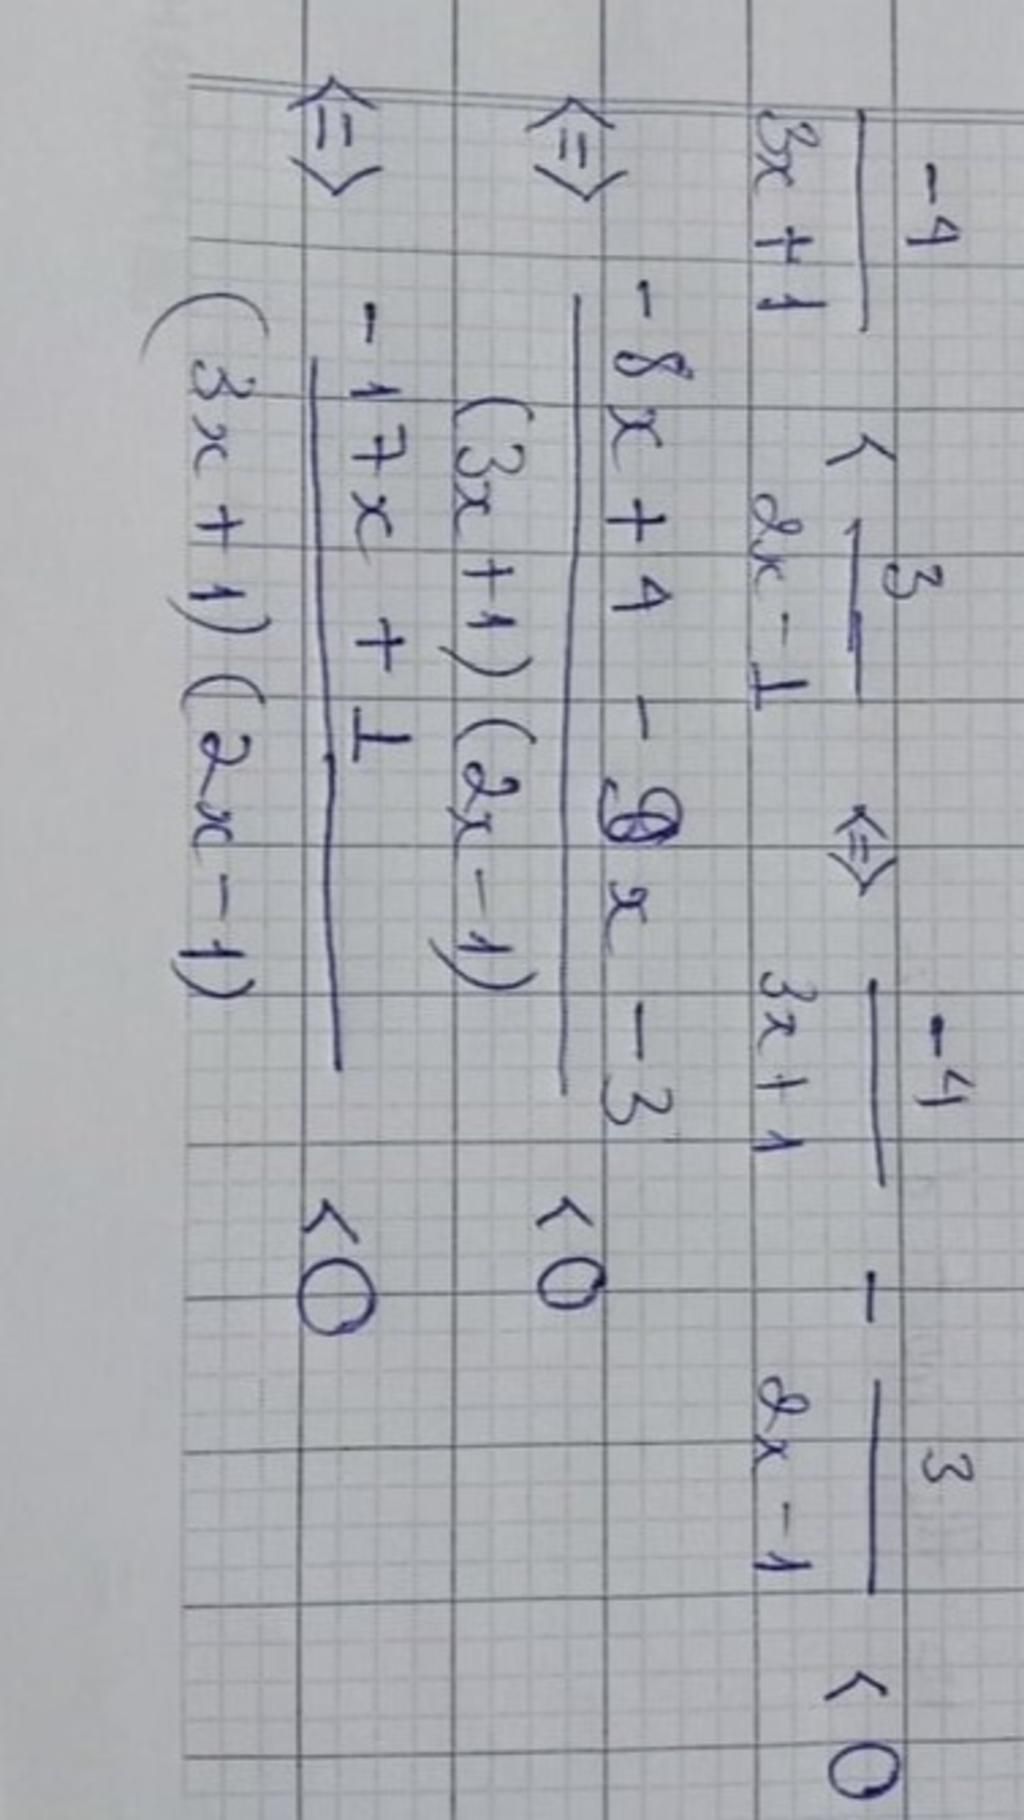 -4/(3x + 1) < 3/(2x - 1) <=> -4/(3x + 1) - 3/(2x - 1) < 0
<=> (-8x + 4 - 9x - 3)/((3x + 1)(2x - 1)) < 0
<=> (-17x + 1)/((3x + 1)(2x - 1)) < 0